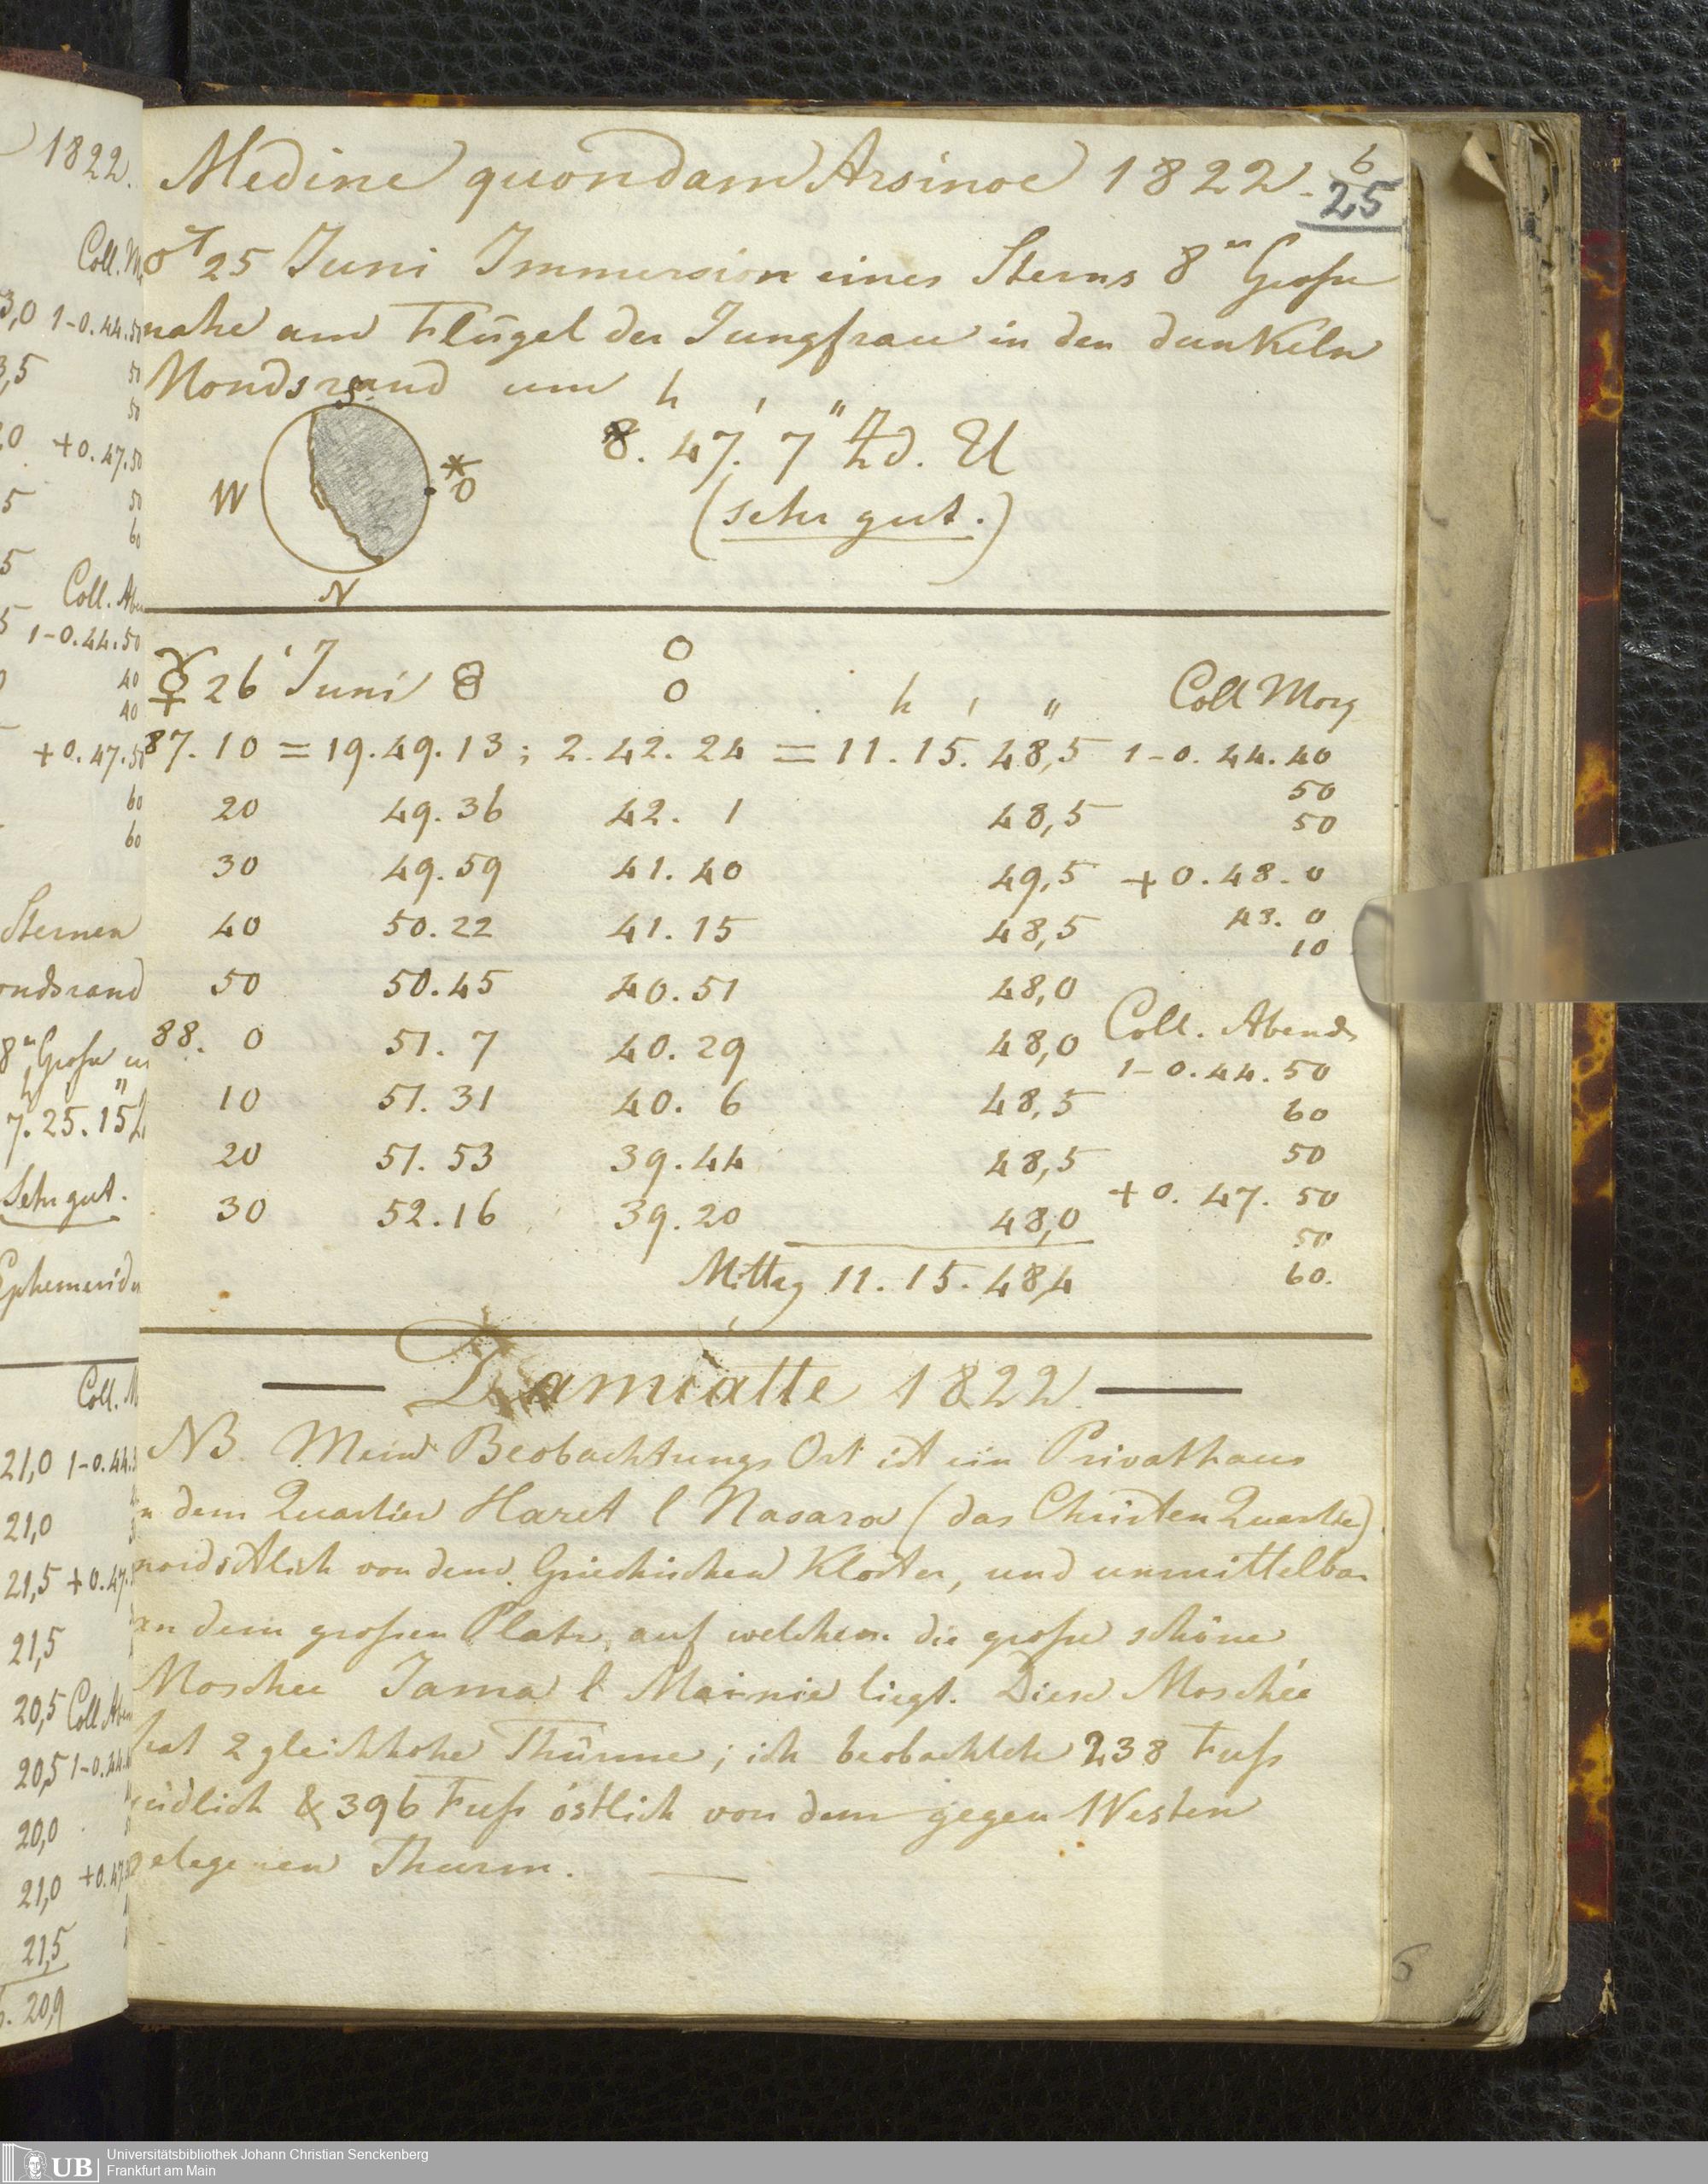 Medine quondam Arsinoe 1822.
6
25
♂ 25 Juni Immersion eines Sterns 8ᵗᵉʳ Große
nahe am Flügel der Jungfrau in den dunkeln
Mondsrand um h ′ ″
8. 47. 7 ♃d. U
(sehr gut.)
S
W
* O
N
☿ 26 Juni
h ′ ″ Coll Morg
87. 10 = 19. 49. 13 ; 2. 42. 24 = 11. 15. 48,5 1-0. 44. 40
50
20 49. 36 42. 1 48,5 50
30 49. 59 41. 40 49,5 +0. 48. 0
40 50. 22 41. 15 48,5 48. 0
10
50 50. 45 40. 51 48,0
88. 0 51. 7 40. 29 48,0 Coll. Abends
1-0. 44. 50
10 51. 31 40. 6 48,5 60
20 51. 53 39. 44 48,5 50
30 52. 16 39. 20 48,0 +0. 47. 50
50
Mittag 11. 15. 48,4 60.
Damiatte 1822.
NB. Mein Beobachtungs Ort ist ein Privathaus
in dem Quartier Haret l Nasara (das Christen Quartier)
nordöstlich von dem Griechischen Kloster, und unmittelbar
an dem großen Platz, auf welchem die große schöne
Moschee Jama l Mainie liegt. Diese Moschée
hat 2 gleichhohe Thürme; ich beobachtete 238 Fuß
südlich & 396 Fuß östlich von dem gegen Westen
gelegenen Thurm.
1822.
Coll. M
3,0 1-0.44.50
3,5 50
50
+0.47.50
50
60
Coll. Aben
1-0.44.50
40
40
+0.47.50
60
60
Sternen
ondsrand
8 Große
7. 25. 15
Sehr gut.
Ephemeride
Coll. M
21,0 1-0.44.
21,0
21,5 +0.47.
21,5
20,5 Coll Aben
20,5 1-0.44.
20,0
21,0 +0.47.
21,5
20,9
6
UB
Universitätsbibliothek Johann Christian Senckenberg
Frankfurt am Main